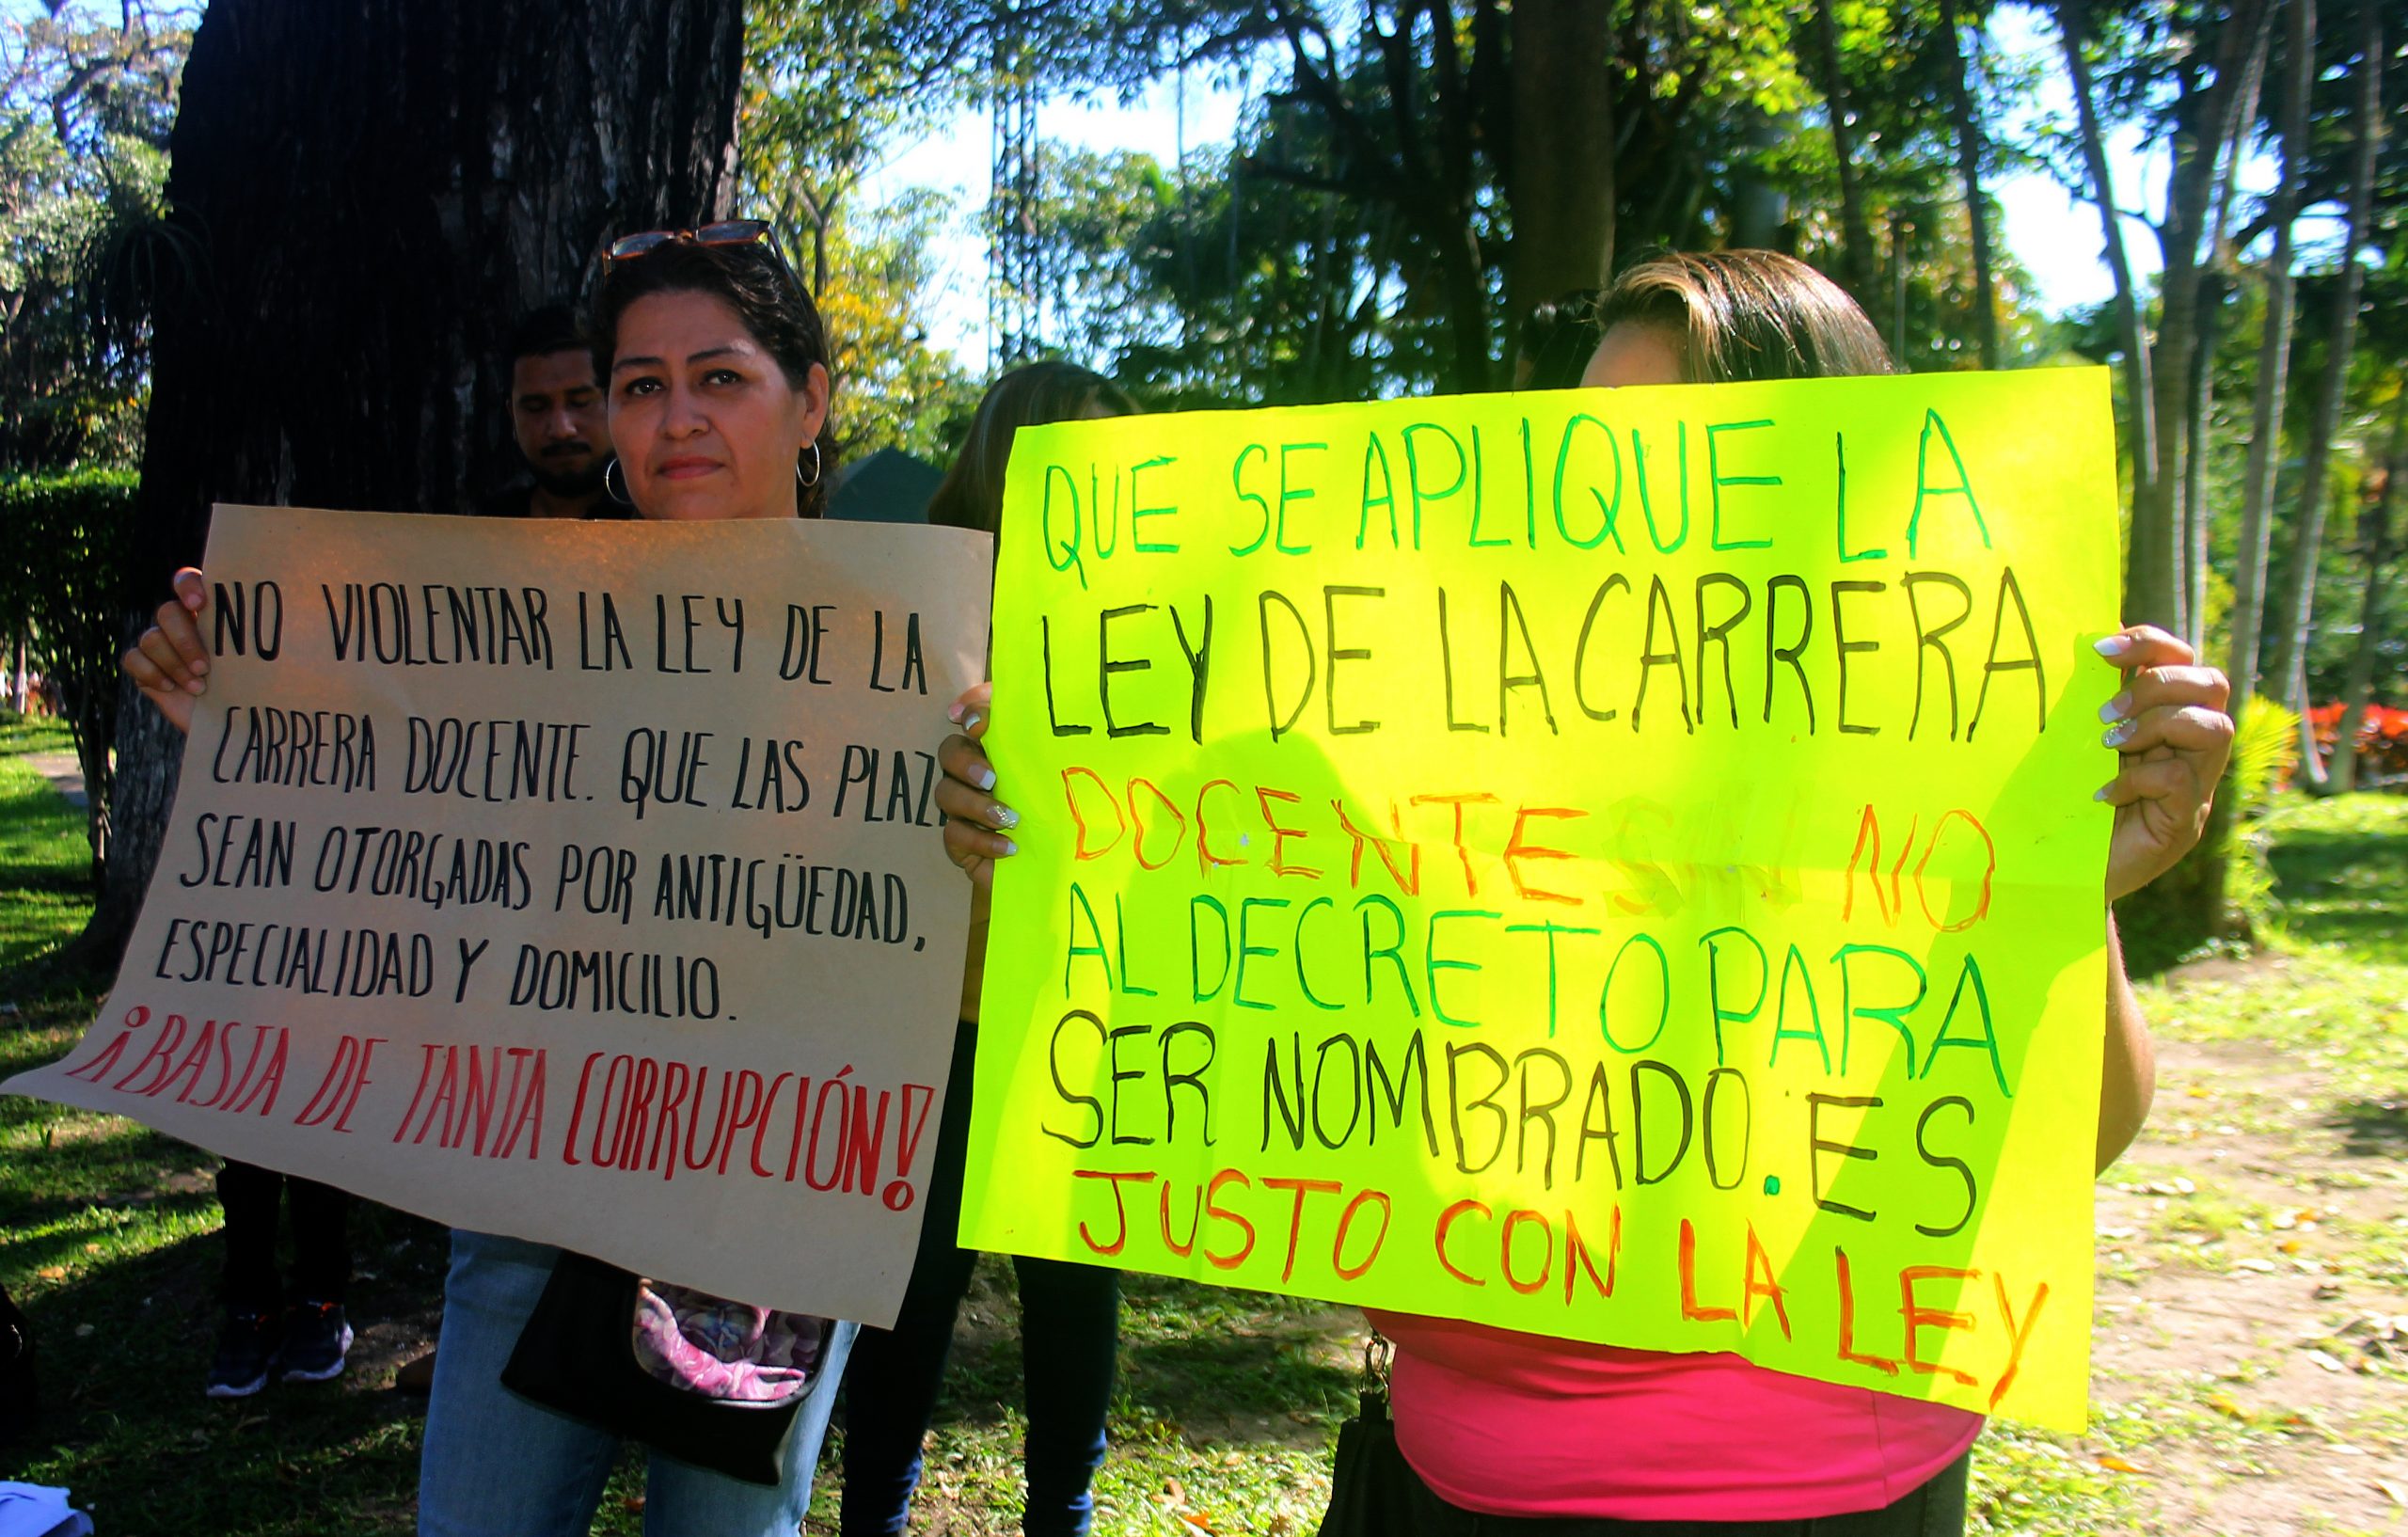 NO VIOLENTAR LA LEY DE LA
CARRERA DOCENTE. QUE LAS PLAZ
SEAN OTORGADAS POR ANTIGÜEDAD,
ESPECIALIDAD Y DOMICILIO.
¡BASTA DE TANTA CORRUPCIÓN!
QUE SE APLIQUE LA
LEY DE LA CARRERA
DOCENTE NO
AL DECRETO PARA
SER NOMBRADO. ES
JUSTO CON LA LEY